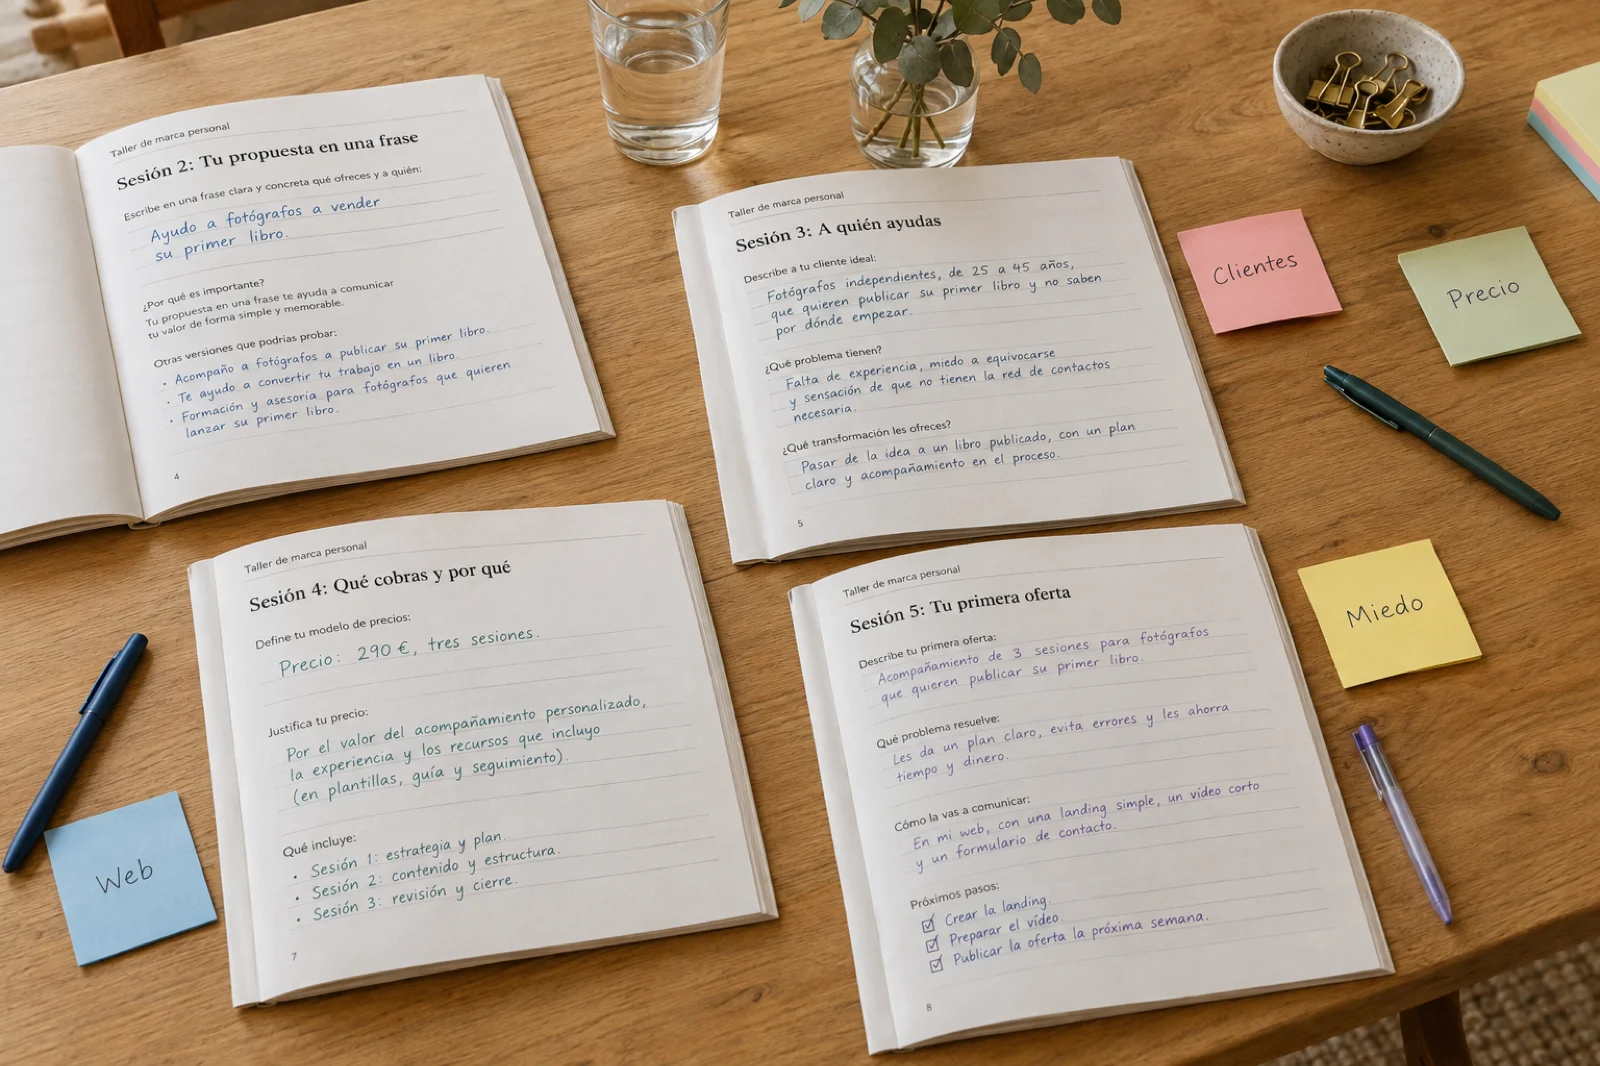 Taller de marca personal
Sesión 2: Tu propuesta en una frase
Escribe en una frase clara y concreta qué ofreces y a quién:
Ayudo a fotógrafos a vender
su primer libro.
¿Por qué es importante?
Tu propuesta en una frase te ayuda a comunicar
tu valor de forma simple y memorable.
Otras versiones que podrías probar:
• Acompaño a fotógrafos a publicar su primer libro.
• Te ayudo a convertir tu trabajo en un libro.
• Formación y asesoria para fotógrafos que quieren
lanzar su primer libro.
4
Taller de marca personal
Sesión 3: A quién ayudas
Describe a tu cliente ideal:
Fotógrafos independientes, de 25 a 45 años,
que quieren publicar su primer libro y no saben
por dónde empezar.
¿Qué problema tienen?
Falta de experiencia, miedo a equivocarse
y sensación de que no tienen la red de contactos
necesaria.
¿Qué transformación les ofreces?
Pasar de la idea a un libro publicado, con un plan
claro y acompañamiento en el proceso.
5
Clientes
Precio
Taller de marca personal
Sesión 4: Qué cobras y por qué
Define tu modelo de precios:
Precio: 290 €, tres sesiones.
Justifica tu precio:
Por el valor del acompañamiento personalizado,
la experiencia y los recursos que incluyo
(en plantillas, guía y seguimiento).
Qué incluye:
• Sesión 1: estrategia y plan.
• Sesión 2: contenido y estructura.
• Sesión 3: revisión y cierre.
7
Web
Taller de marca personal
Sesión 5: Tu primera oferta
Describe tu primera oferta:
Acompañamiento de 3 sesiones para fotógrafos
que quieren publicar su primer libro.
Qué problema resuelve:
Les da un plan claro, evita errores y les ahorra
tiempo y dinero.
Cómo la vas a comunicar:
En mi web, con una landing simple, un vídeo corto
y un formulario de contacto.
Próximos pasos:
☑ Crear la landing.
☑ Preparar el vídeo.
☑ Publicar la oferta la próxima semana.
8
Miedo